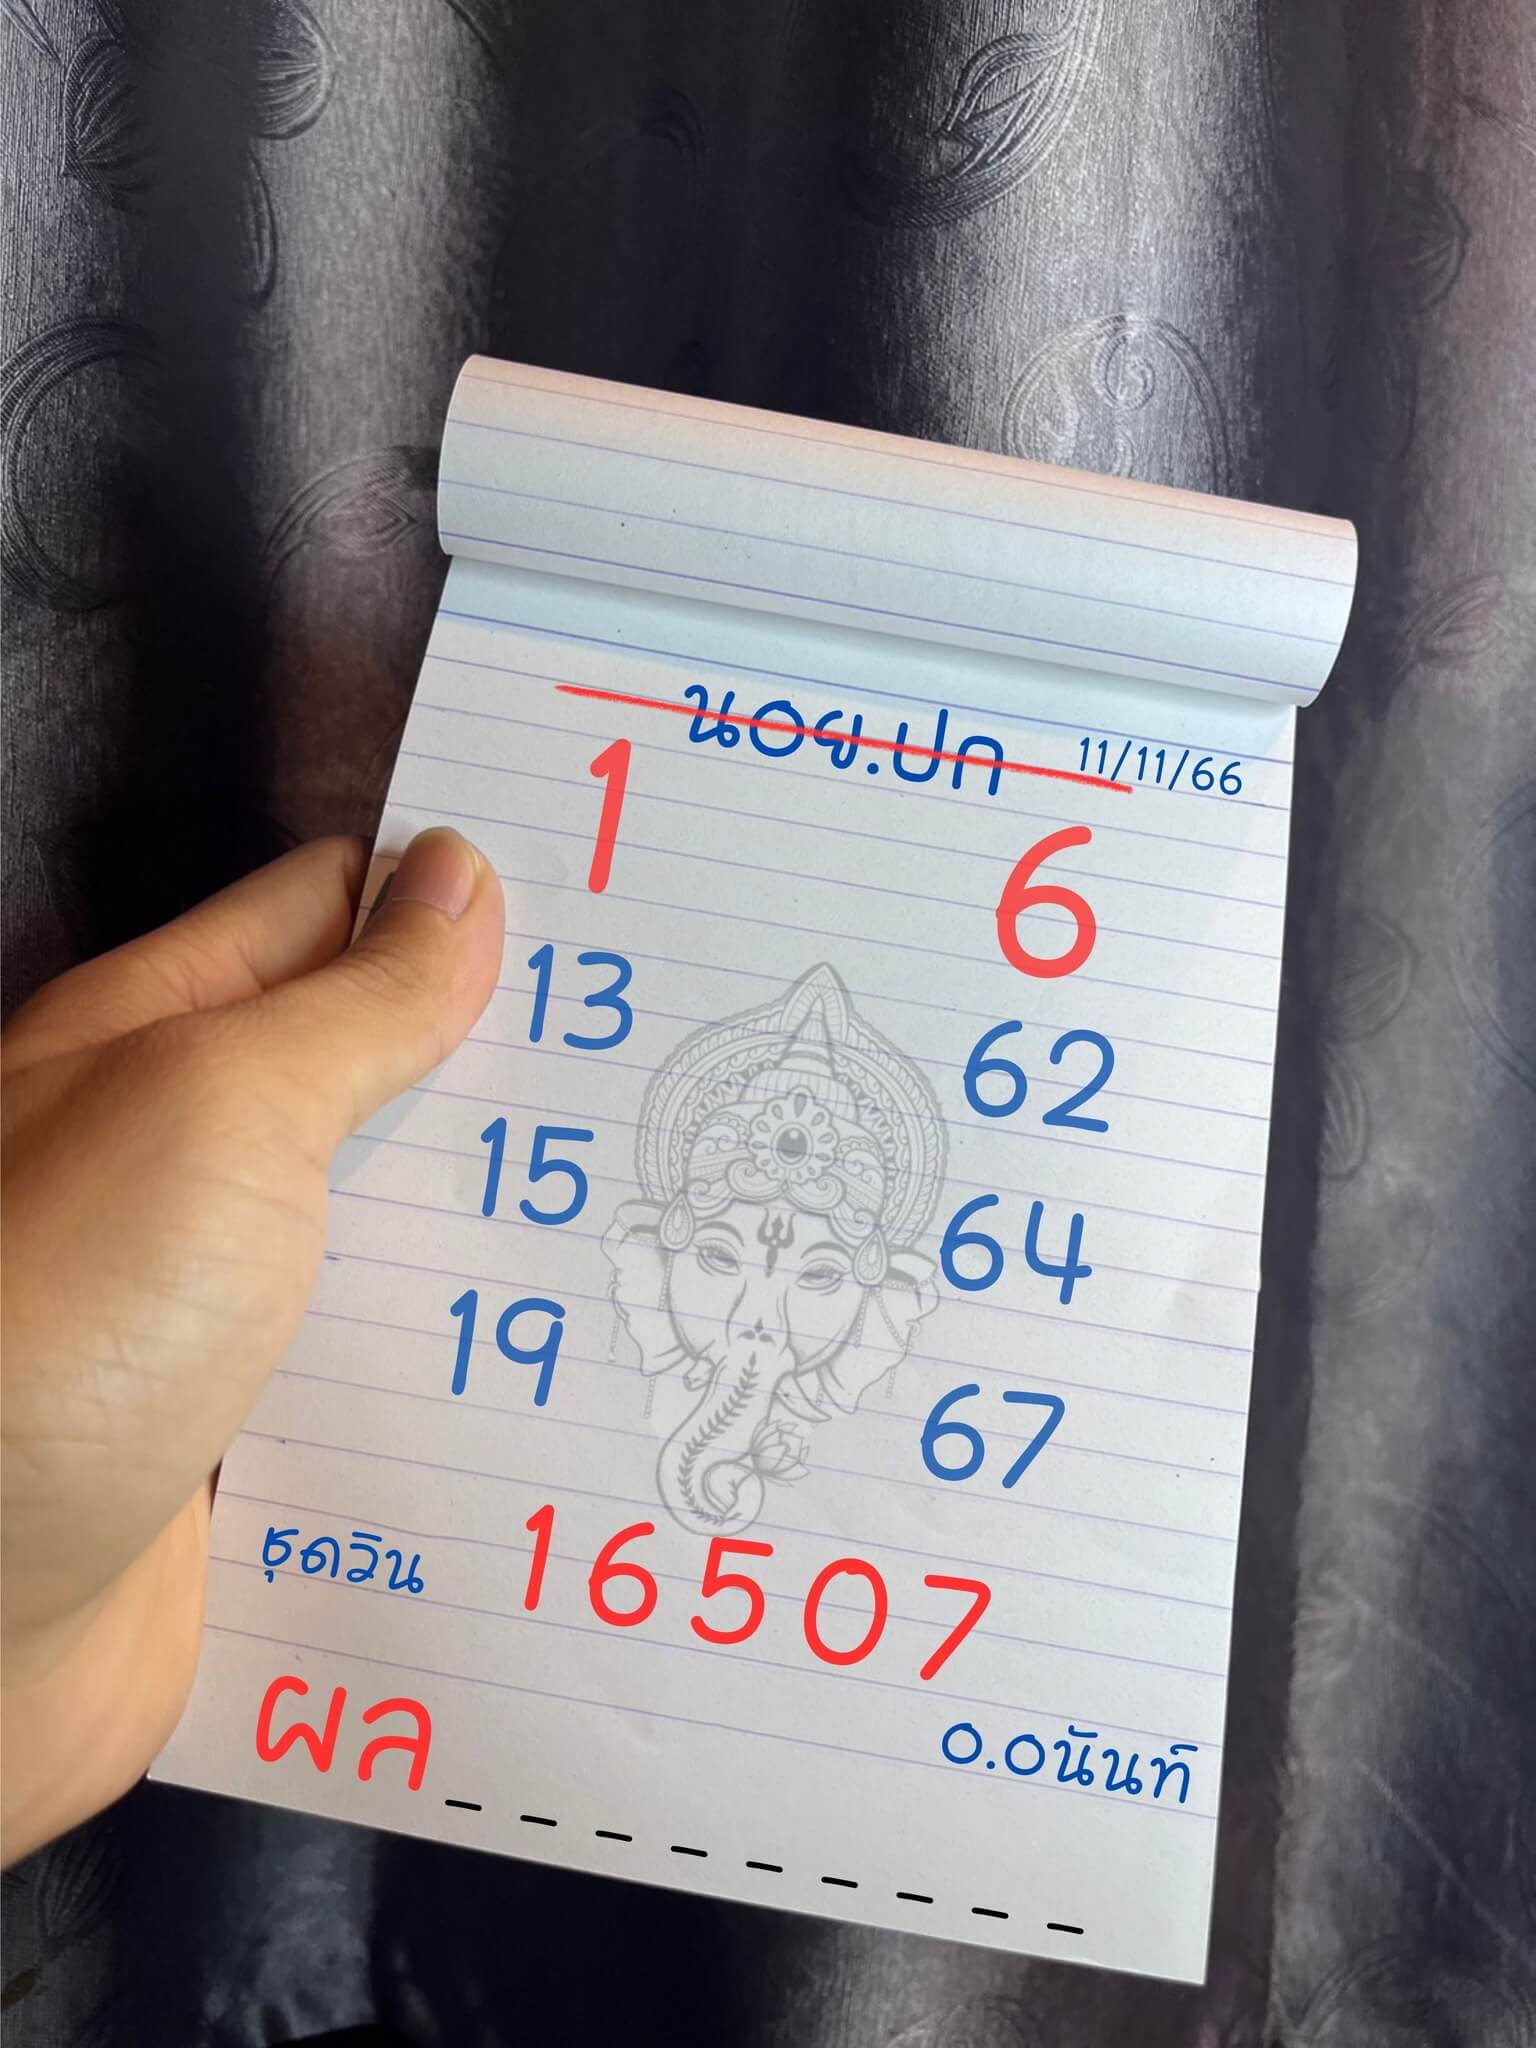 นอย.ปก 11/11/66
1 6
13 62
15 64
19 67
ชุดวิน 16507
ผล_ _ _ _ _ _ _ _ _
อ.อนันท์